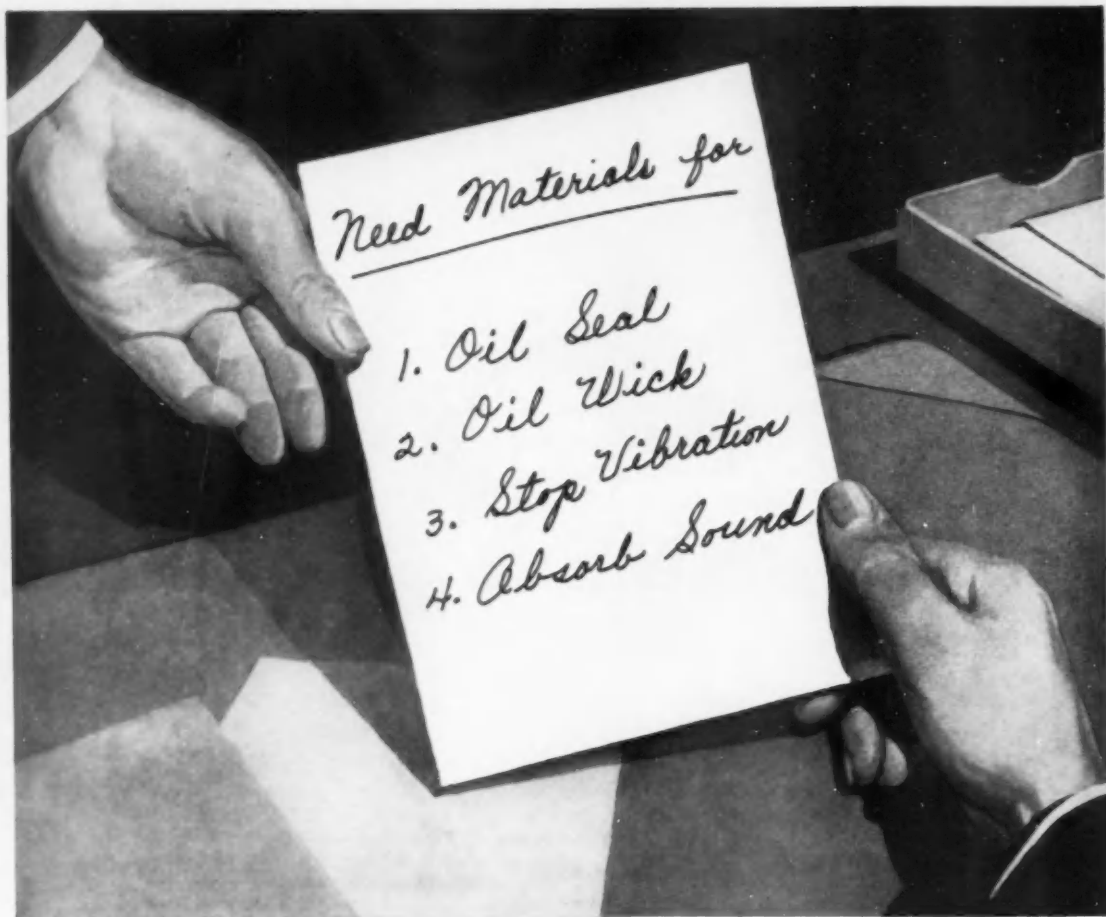 Need Materials for
1. Oil Seal
2. Oil Wick
3. Stop Vibration
4. Absorb Sound